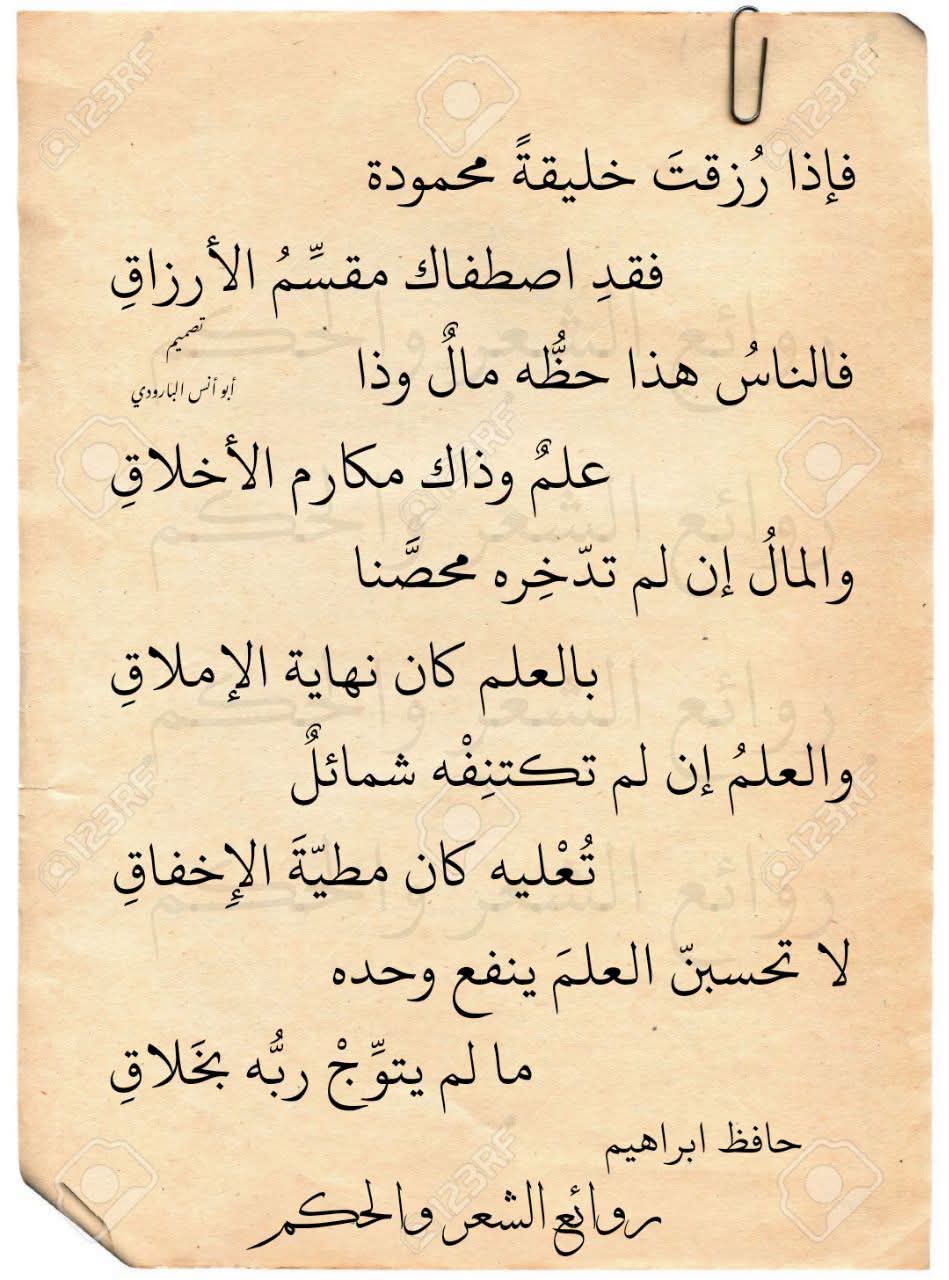 فإذا رُزقتَ خليقةً محمودة
فقدِ اصطفاك مقسِّمُ الأرزاقِ
فالناسُ هذا حظُّه مالٌ وذا
تصميم
أبو أنس البارودي
علمٌ وذاك مكارم الأخلاقِ
والمالُ إن لم تدّخِره محصَّنا
بالعلم كان نهاية الإملاقِ
والعلمُ إن لم تكتنِفْه شمائلٌ
تُعْليه كان مطيّةَ الإخفاقِ
لا تحسبنّ العلمَ ينفع وحده
ما لم يتوِّجْ ربُّه بخَلاقِ
حافظ ابراهيم
روائع الشعر والحكم
روائع الشعر والحكم
روائع الشعر والحكم
روائع الشعر والحكم
روائع الشعر والحكم
123RF